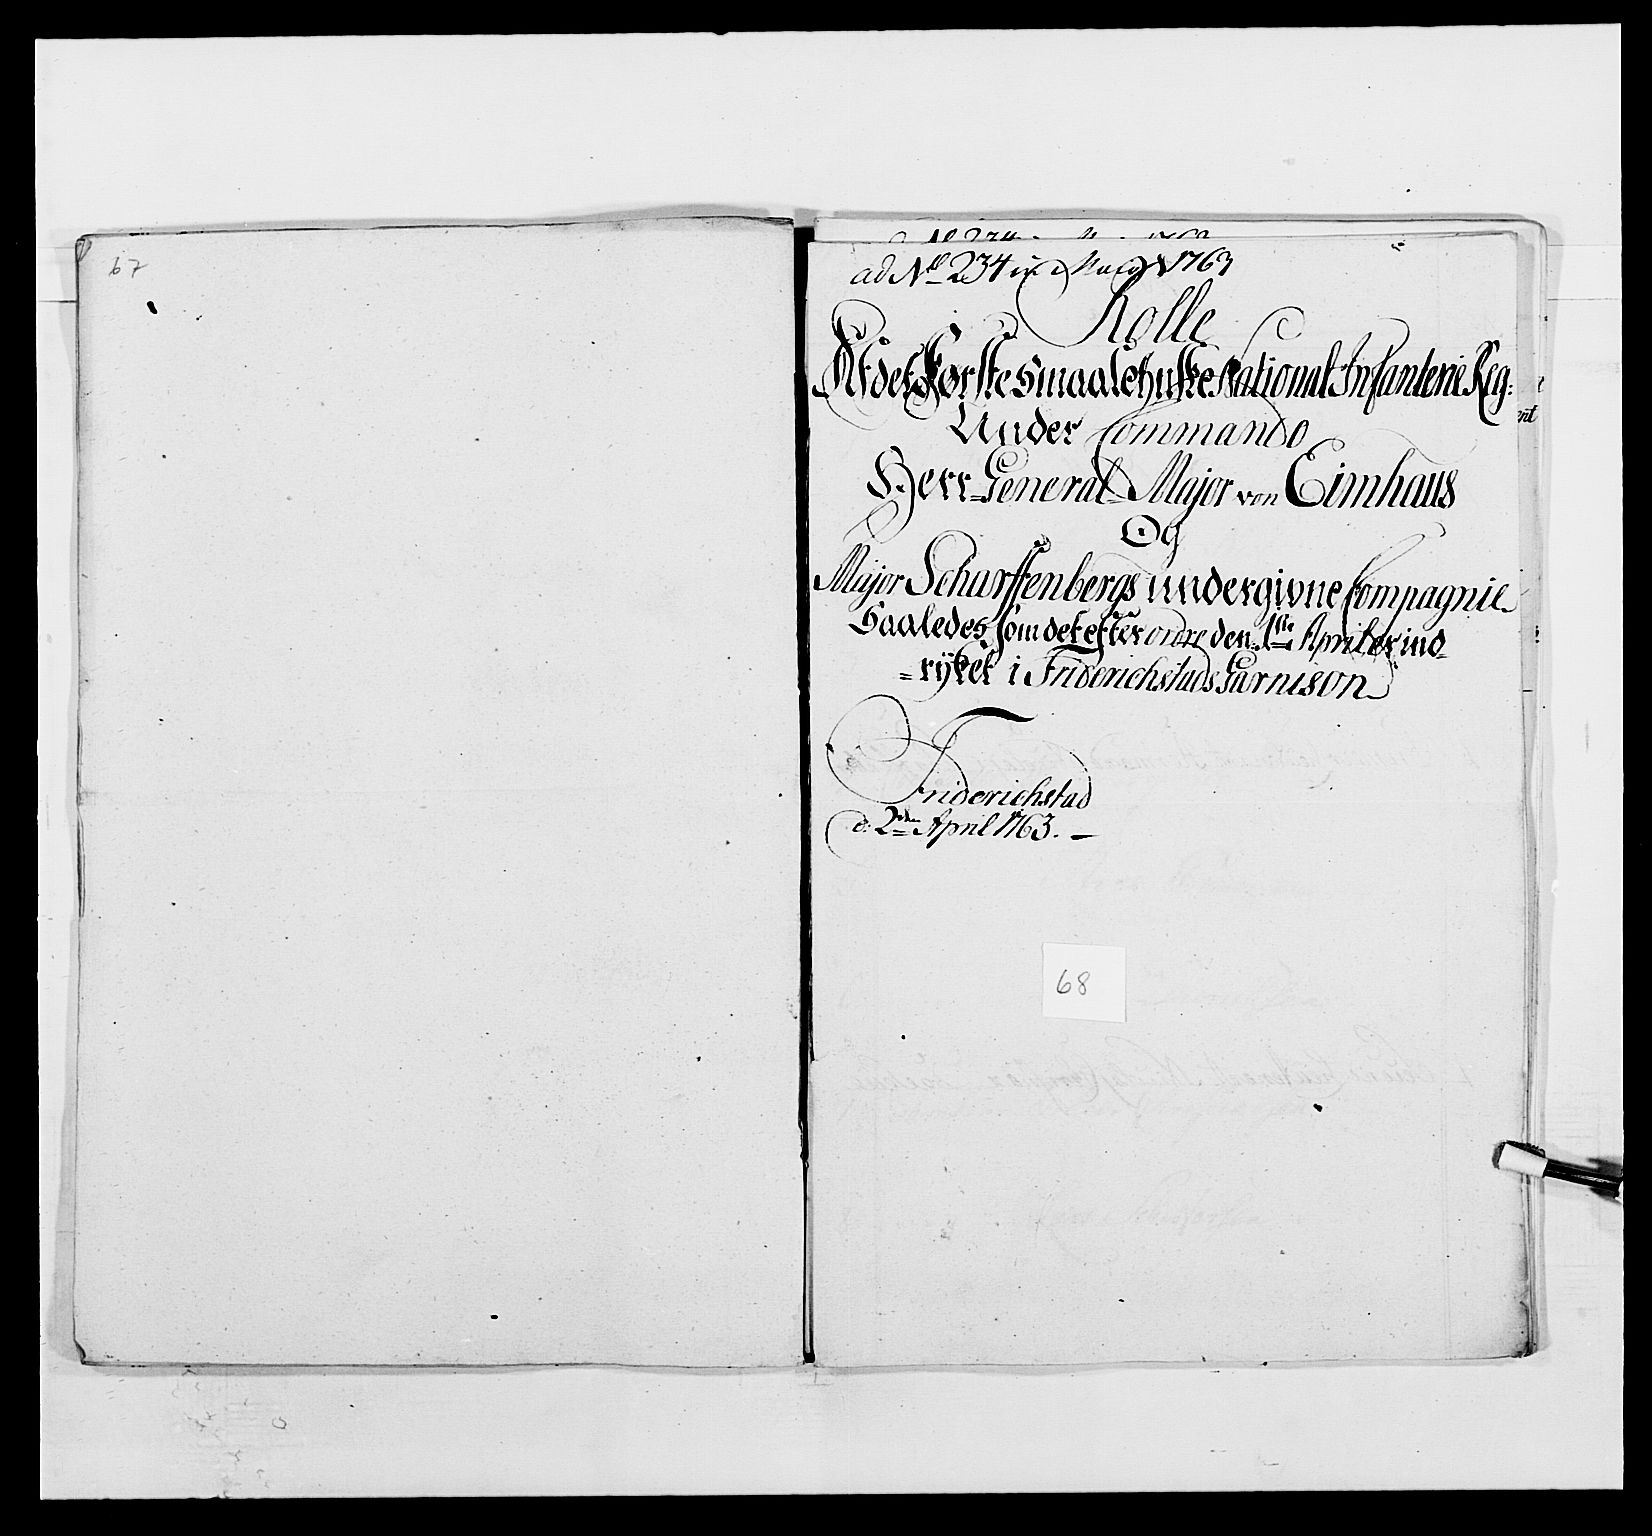 67
ad No 234 in 1763
Rolle
Af det Første Smaalehnske National Infanterie Reg:
Under Commando
Herr General Major von Eimhaus
Og
Major Scharffenbergs undergivne Compagnie
Saaledes som det efter ordre den 1ste April er ind-
=rÿket i Friderichstads Garnison
Friderichstad
d: 2den April 1763. —
68